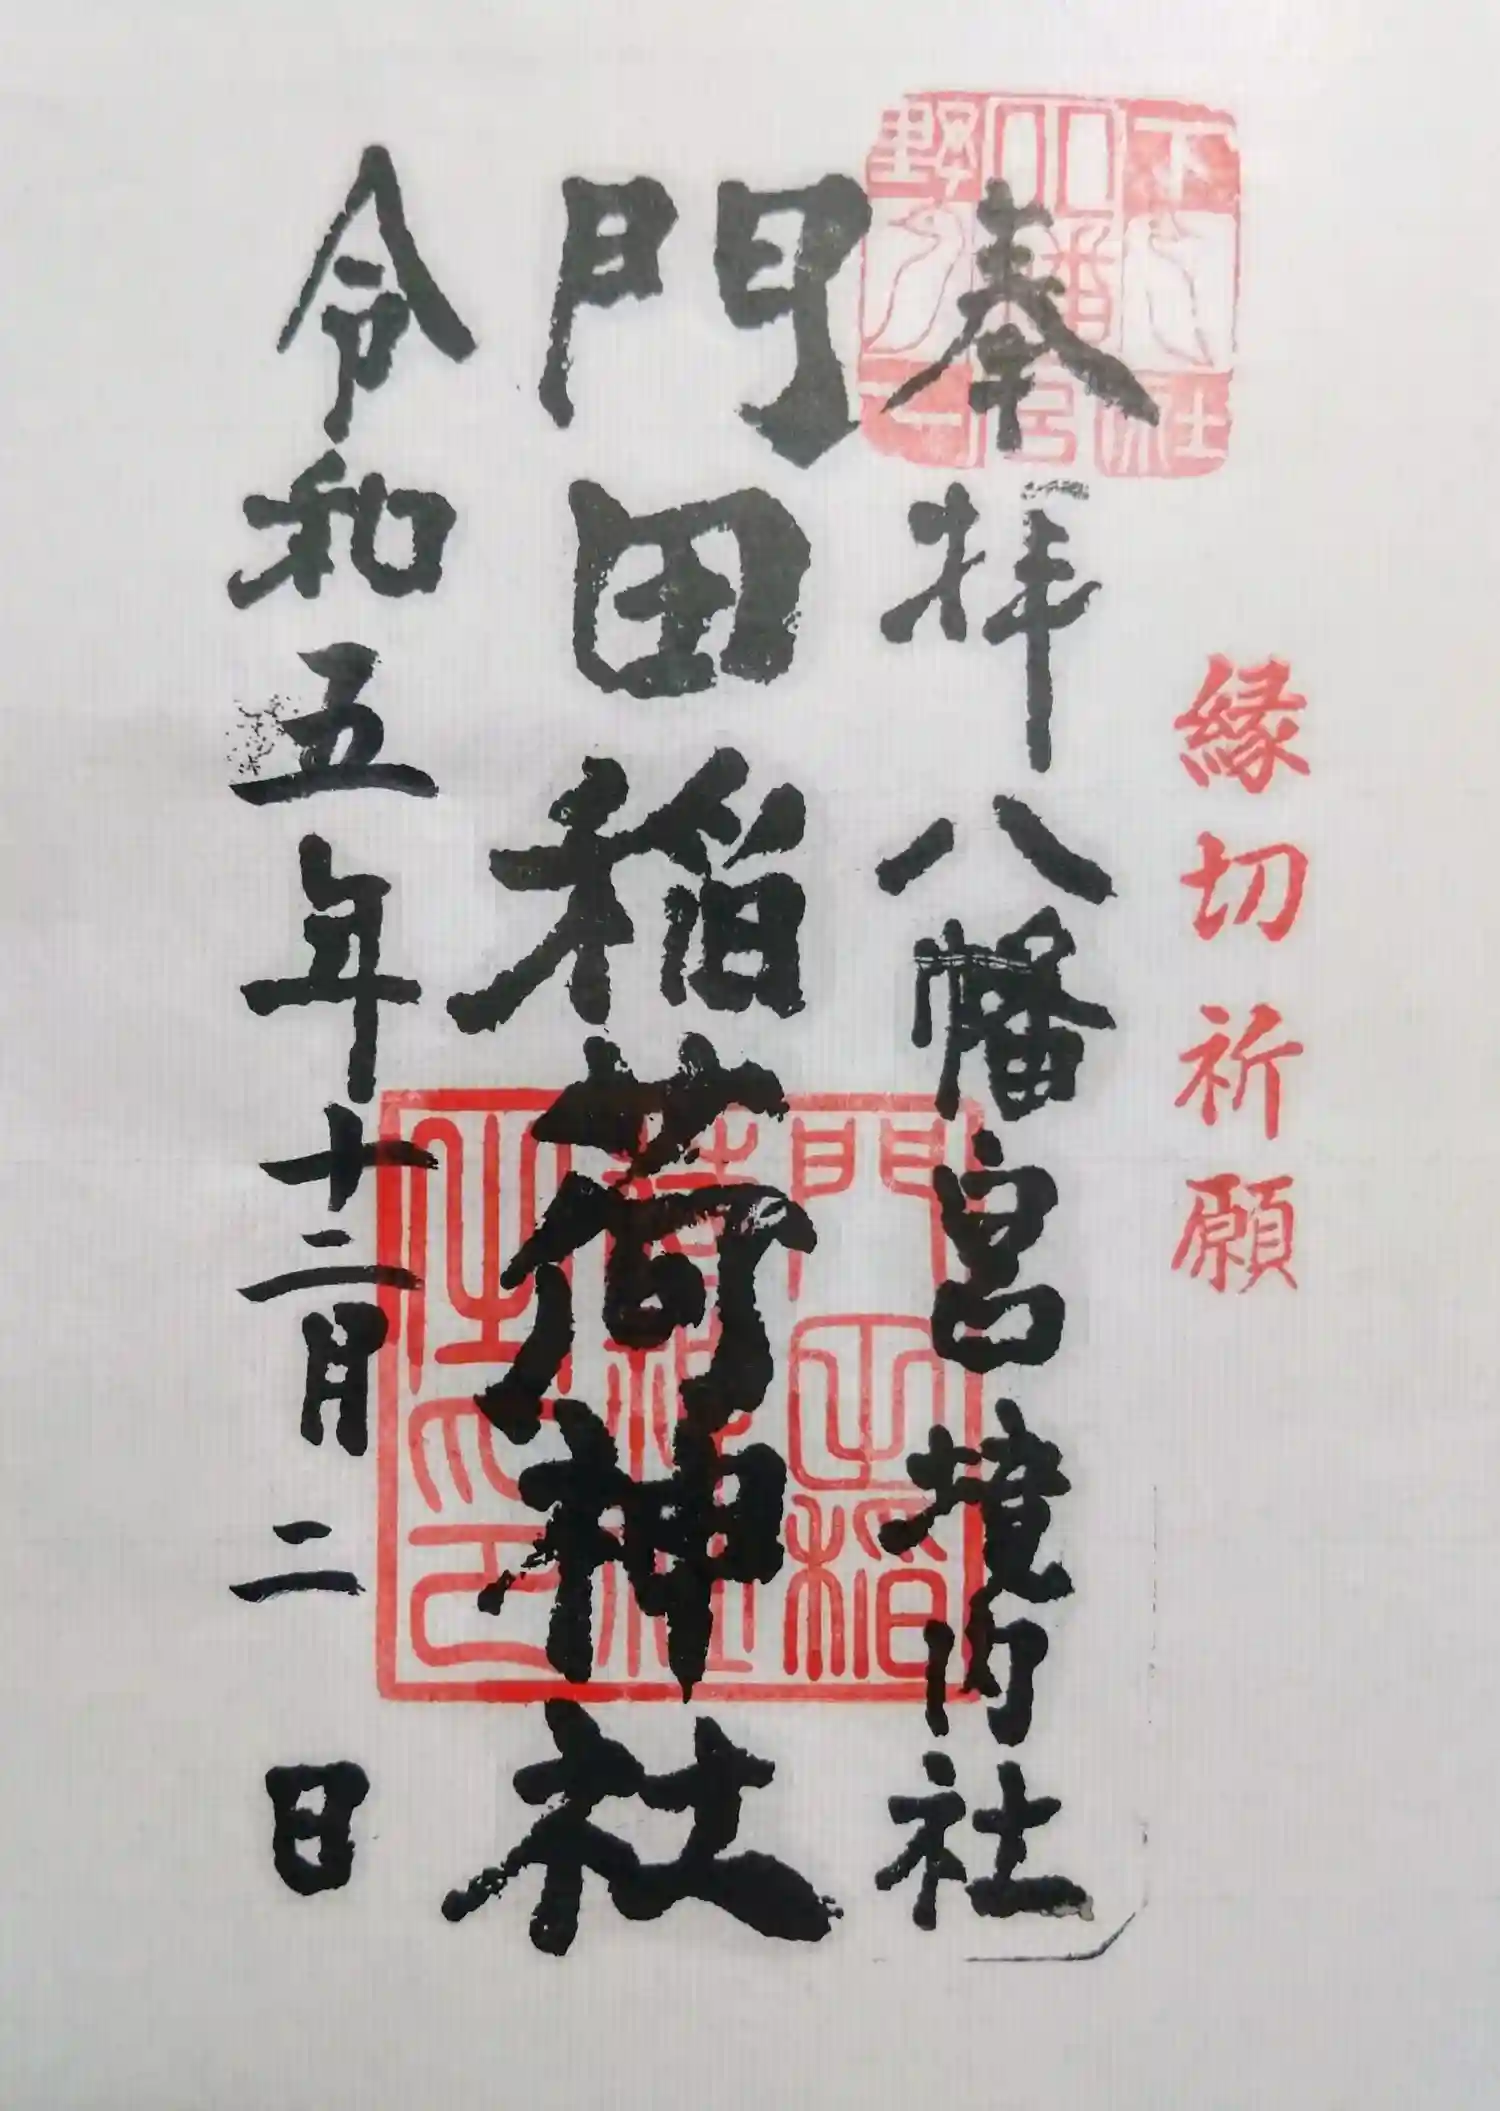 縁切祈願
奉拝八幡宮境内社
門田稲荷神社
令和五年十二月二日
下野
一社
八幡宮
門田稲
荷神社
之印